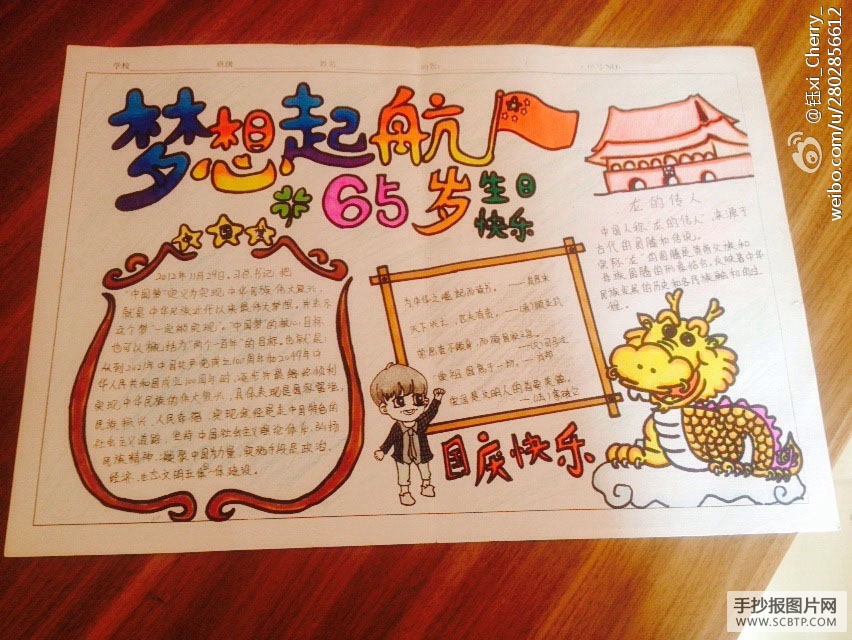 学校
梦想起航
65岁生日快乐
中国梦
2012年11月29日。习总书记把
"中国梦"定义为实现中华民族伟大复兴，
就是中华民族近代以来最伟大梦想，并表示
这个梦"一定能实现"。"中国梦"的核心目标
也可以概括为"两个一百年"的目标，也就是：
从到2021年中国共产党成立100周年和2049年中
华人民共和国成立100周年时，逐步并最终顺利
实现中华民族的伟大复兴，具体表现是国家富强，
民族振兴，人民幸福，实现途径是走中国特色的
社会主义道路，坚持中国社会主义理论体系，弘扬
民族精神，凝聚中国力量，实施手段是政治，
经济，生态文明五位一体建设。
为中华之崛起而读书。
天下兴亡，匹夫有责。
国庆快乐
龙的传人
中国人称"龙的传人"，来源于
古代由图腾和传说。
实际"龙"的图腾是
各族图腾的形象结合，反映着中华
民族发展的历史和各民族融和的过
程。
@钰xi_Cherry_
weibo.com/u/2802856612
手抄报图片网
WWW.SCBTP.COM